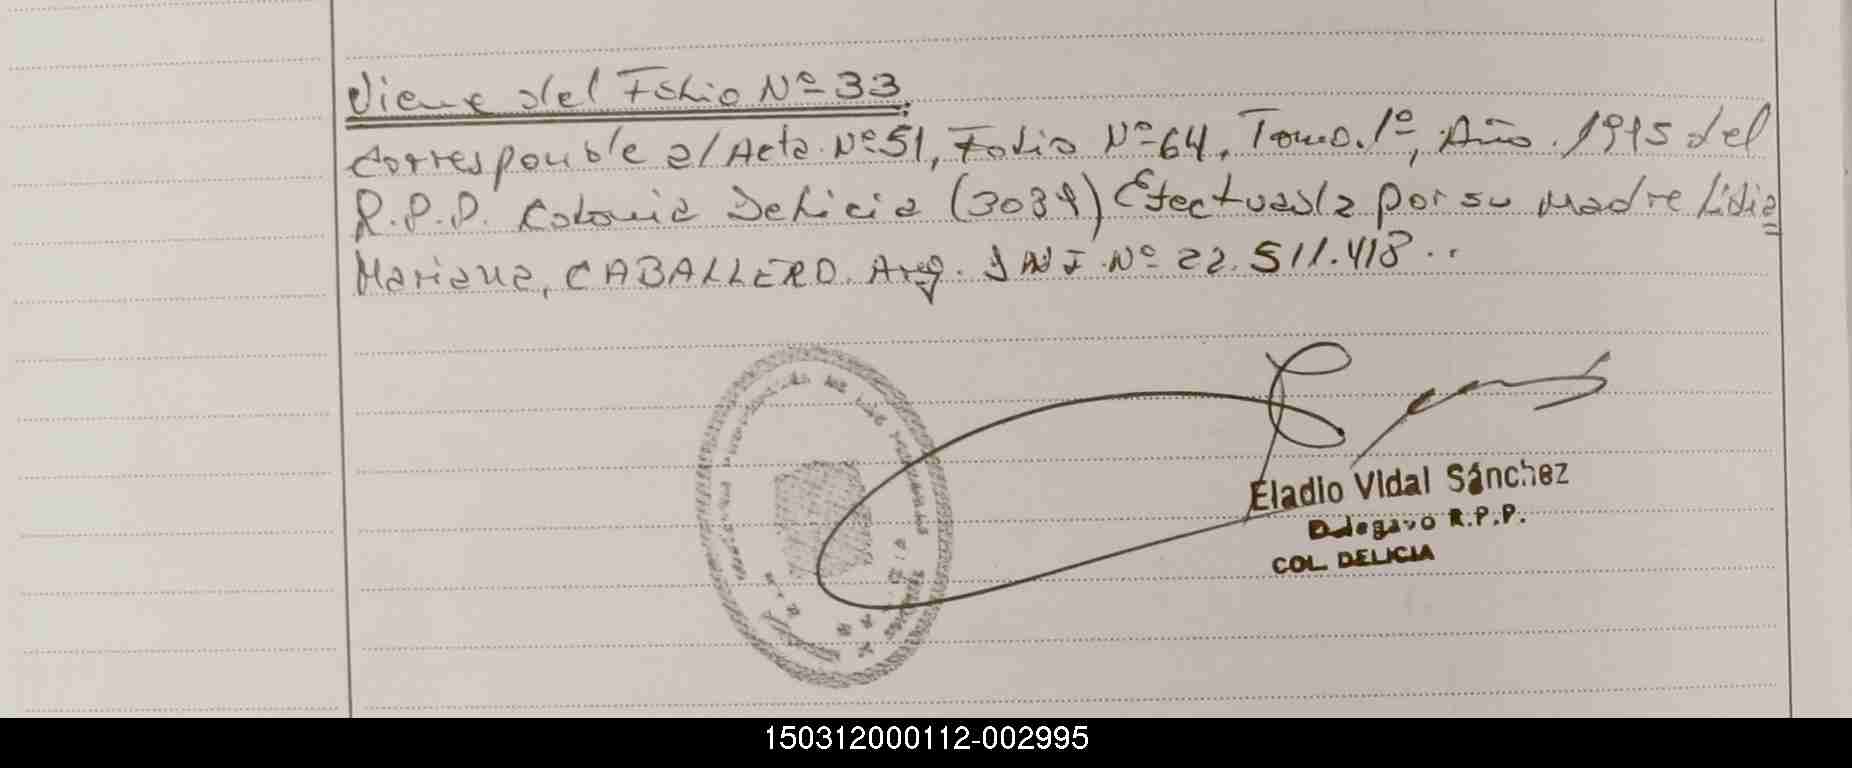 Viene del Folio Nº 33.
Corresponde al Acta Nº 51, Folio Nº 64, Tomo. 1º, Año. 1995 del
R.P.P. Colonia Delicia (3034) Efectuada por su Madre Lidia
Mariana, CABALLERO. Arg. DNI Nº 22.511.418..
Eladio Vidal Sánchez
Delegado R.P.P.
COL. DELICIA
150312000112-002995